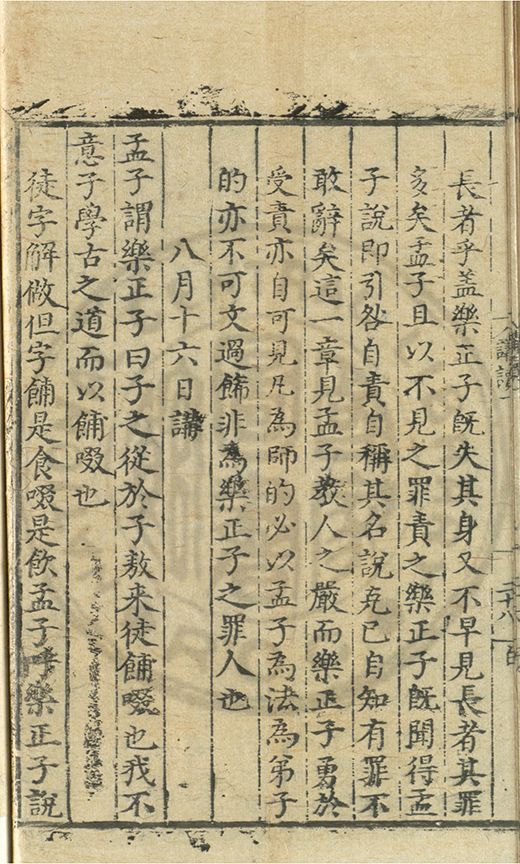 長者乎盖樂正子旣失其身又不早見長者其罪
多矣孟子且以不見之罪責之樂正子旣聞得孟
子說即引咎自責自稱其名說克已自知有罪不
敢辭矣這一章見孟子教人之嚴而樂正子勇於
受責亦自可見凡為師的必以孟子為法為弟子
的亦不可文過飾非為樂正子之罪人也
八月十六日講
孟子謂樂正子曰子之從於子敖来徒餔啜也我不
意子學古之道而以餔啜也
徒字解做但字餔是食啜是飲孟子樂正子說